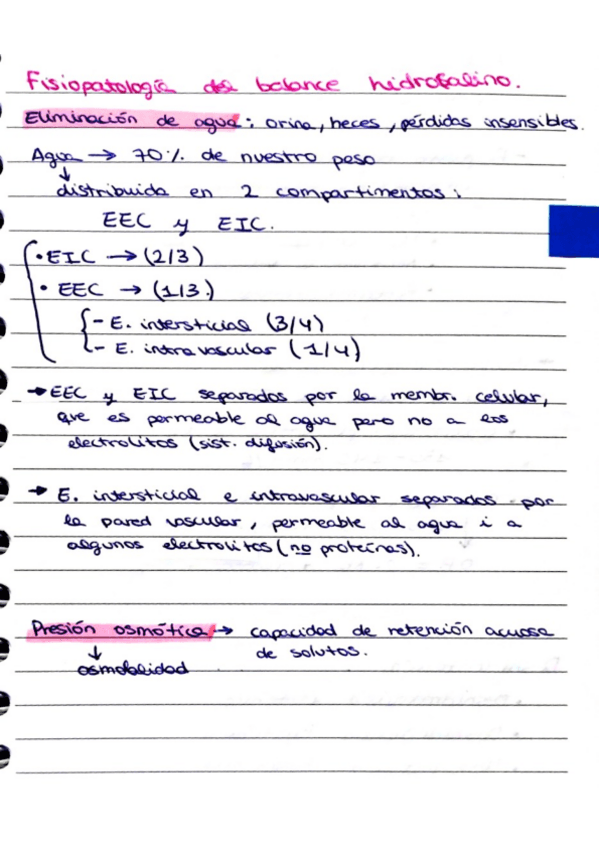 Fisiopatología del balance hidrosalino.
Eliminación de agua: orina, heces, pérdidas insensibles.
Agua → 70% de nuestro peso
↓
distribuida en 2 compartimentos:
EEC y EIC.
• EIC → (2/3)
• EEC → (1/3)
- E. intersticial (3/4)
- E. intravascular (1/4)
→ EEC y EIC separados por la membr. celular,
que es permeable al agua pero no a los
electrolitos (sist. difusión).
→ E. intersticial e intravascular separados por
la pared vascular, permeable al agua i a
algunos electrolitos (no proteínas).
Presión osmótica → capacidad de retención acuosa
↓ de solutos.
osmolalidad